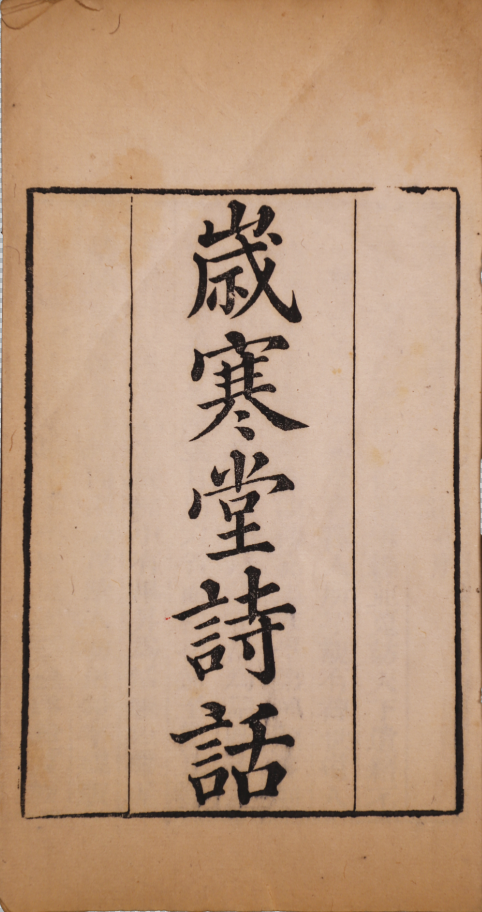 歳寒堂詩話